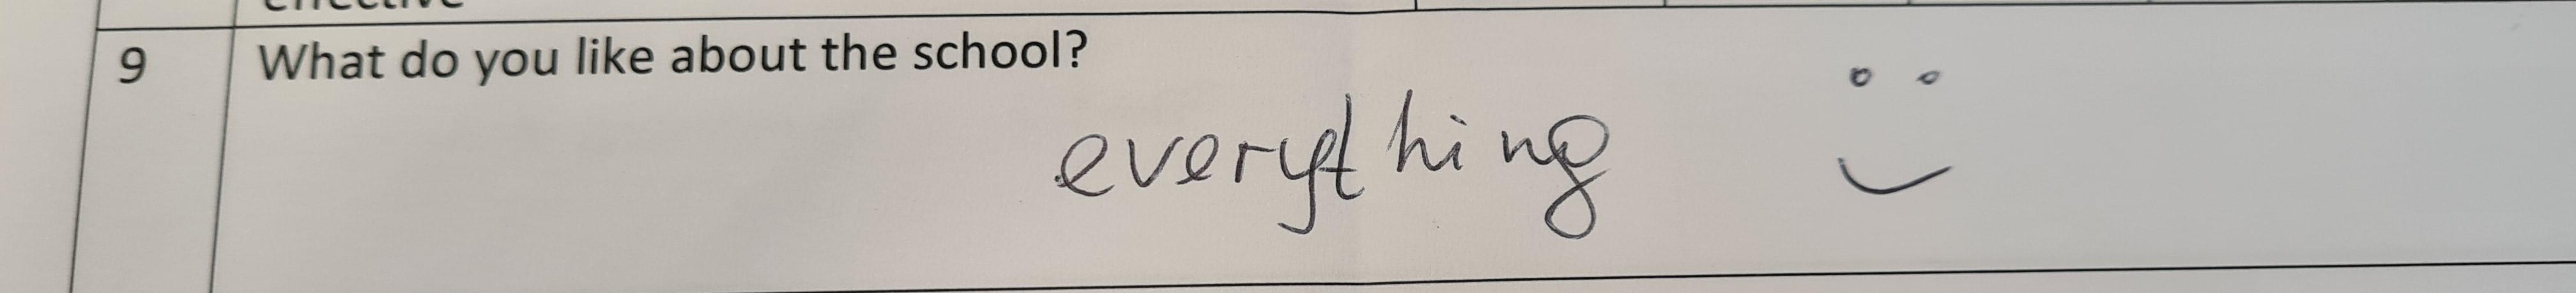 effective
9 What do you like about the school?
everything